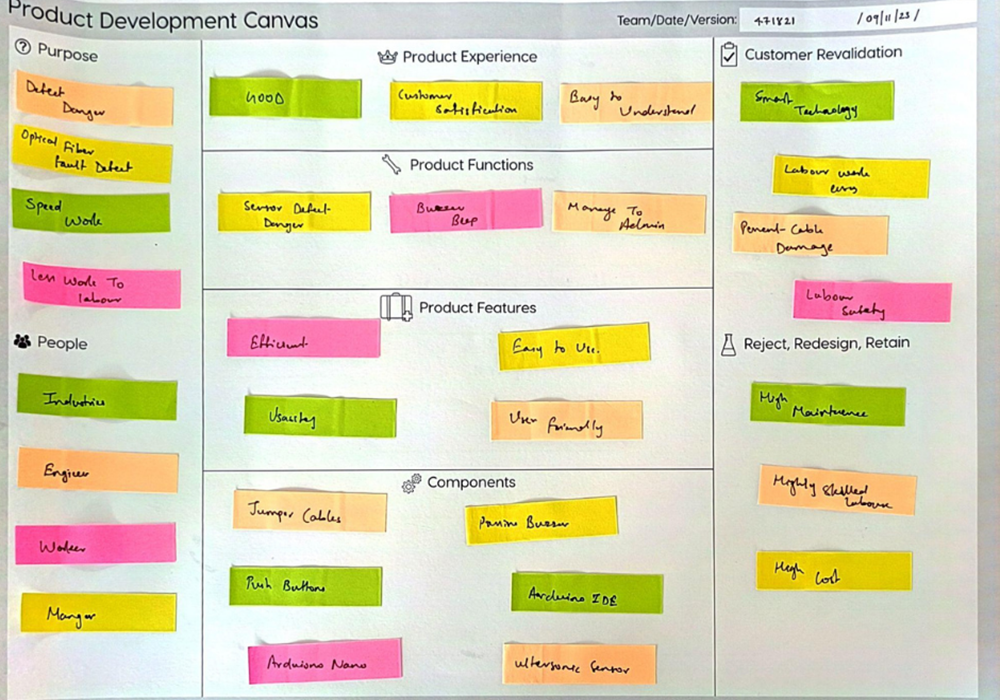 Product Development Canvas
Team/Date/Version: 471821 /09/11/23/
Purpose
Detect
Danger
Optical Fiber
Fault Detect
Speed
Work
Less Work To
labour
People
Industries
Engineer
Worker
Manger
Product Experience
GOOD
Customer
Satisfication
Easy to
Understand
Product Functions
Sensor Detect
Danger
Buzzer
Beep
Manage To
Admin
Product Features
Efficient
Easy to Use.
User Friendly
Components
Jumper Cables
Buzzer
Push Buttons
Arduino IDE
Arduiono Nano
Ultersonic Sensor
Customer Revalidation
Smart
Technology
Labour work
easy
Cable
Damage
Labour
Safety
Reject, Redesign, Retain
High
Maintenence
Highly Skilled
labour
High
Cost